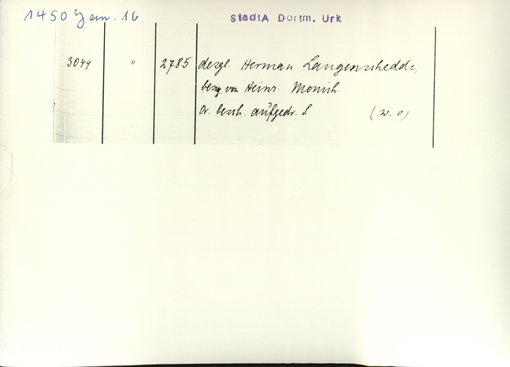 1450 Jan. 16
StadtA Dortm. Urk
3044 " 2785 desgl. Herman Langenschedde,
besg. von Heinr. Monich
Or. besch. aufgedr. S (w. o)